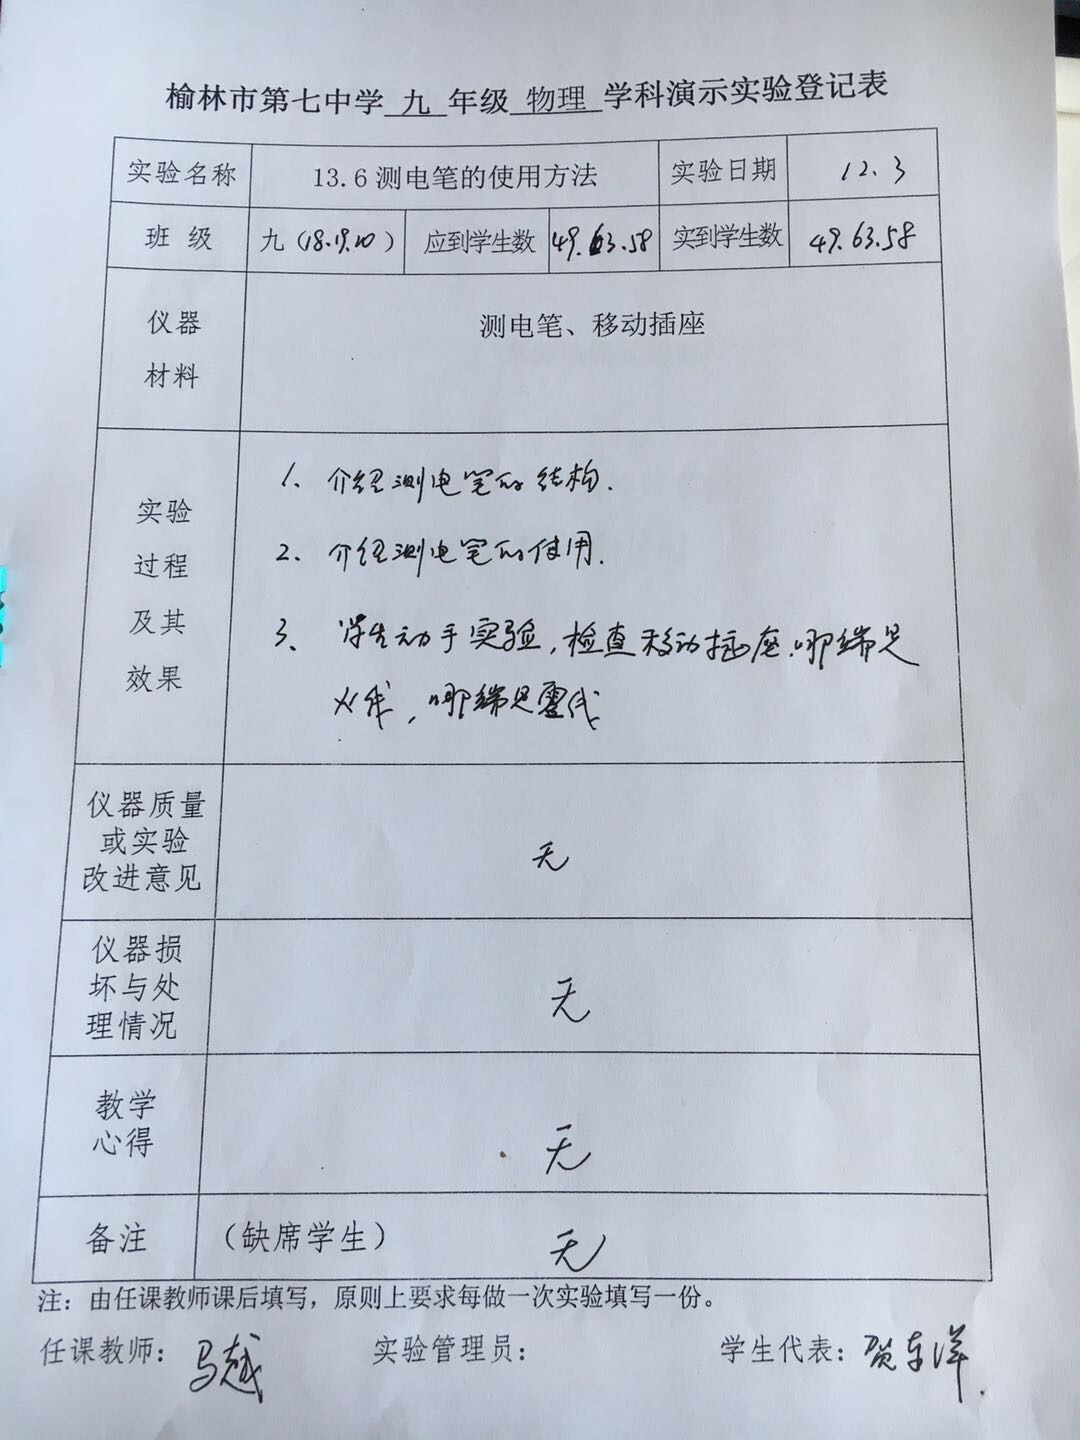 榆林市第七中学 九 年级 物理 学科演示实验登记表
实验名称 13.6测电笔的使用方法 实验日期 12.3
班 级 九（18.19.20） 应到学生数 49.63.58 实到学生数 49.63.58
仪器
材料
测电笔、移动插座
实验
过程
及其
效果
1、介绍测电笔的结构.
2、介绍测电笔的使用.
3、学生动手实验,检查移动插座.哪端是
火线,哪端是零线
仪器质量
或实验
改进意见
无
仪器损
坏与处
理情况
无
教学
心得
无
备注 （缺席学生） 无
注：由任课教师课后填写，原则上要求每做一次实验填写一份。
任课教师：马越 实验管理员： 学生代表：贺东洋.